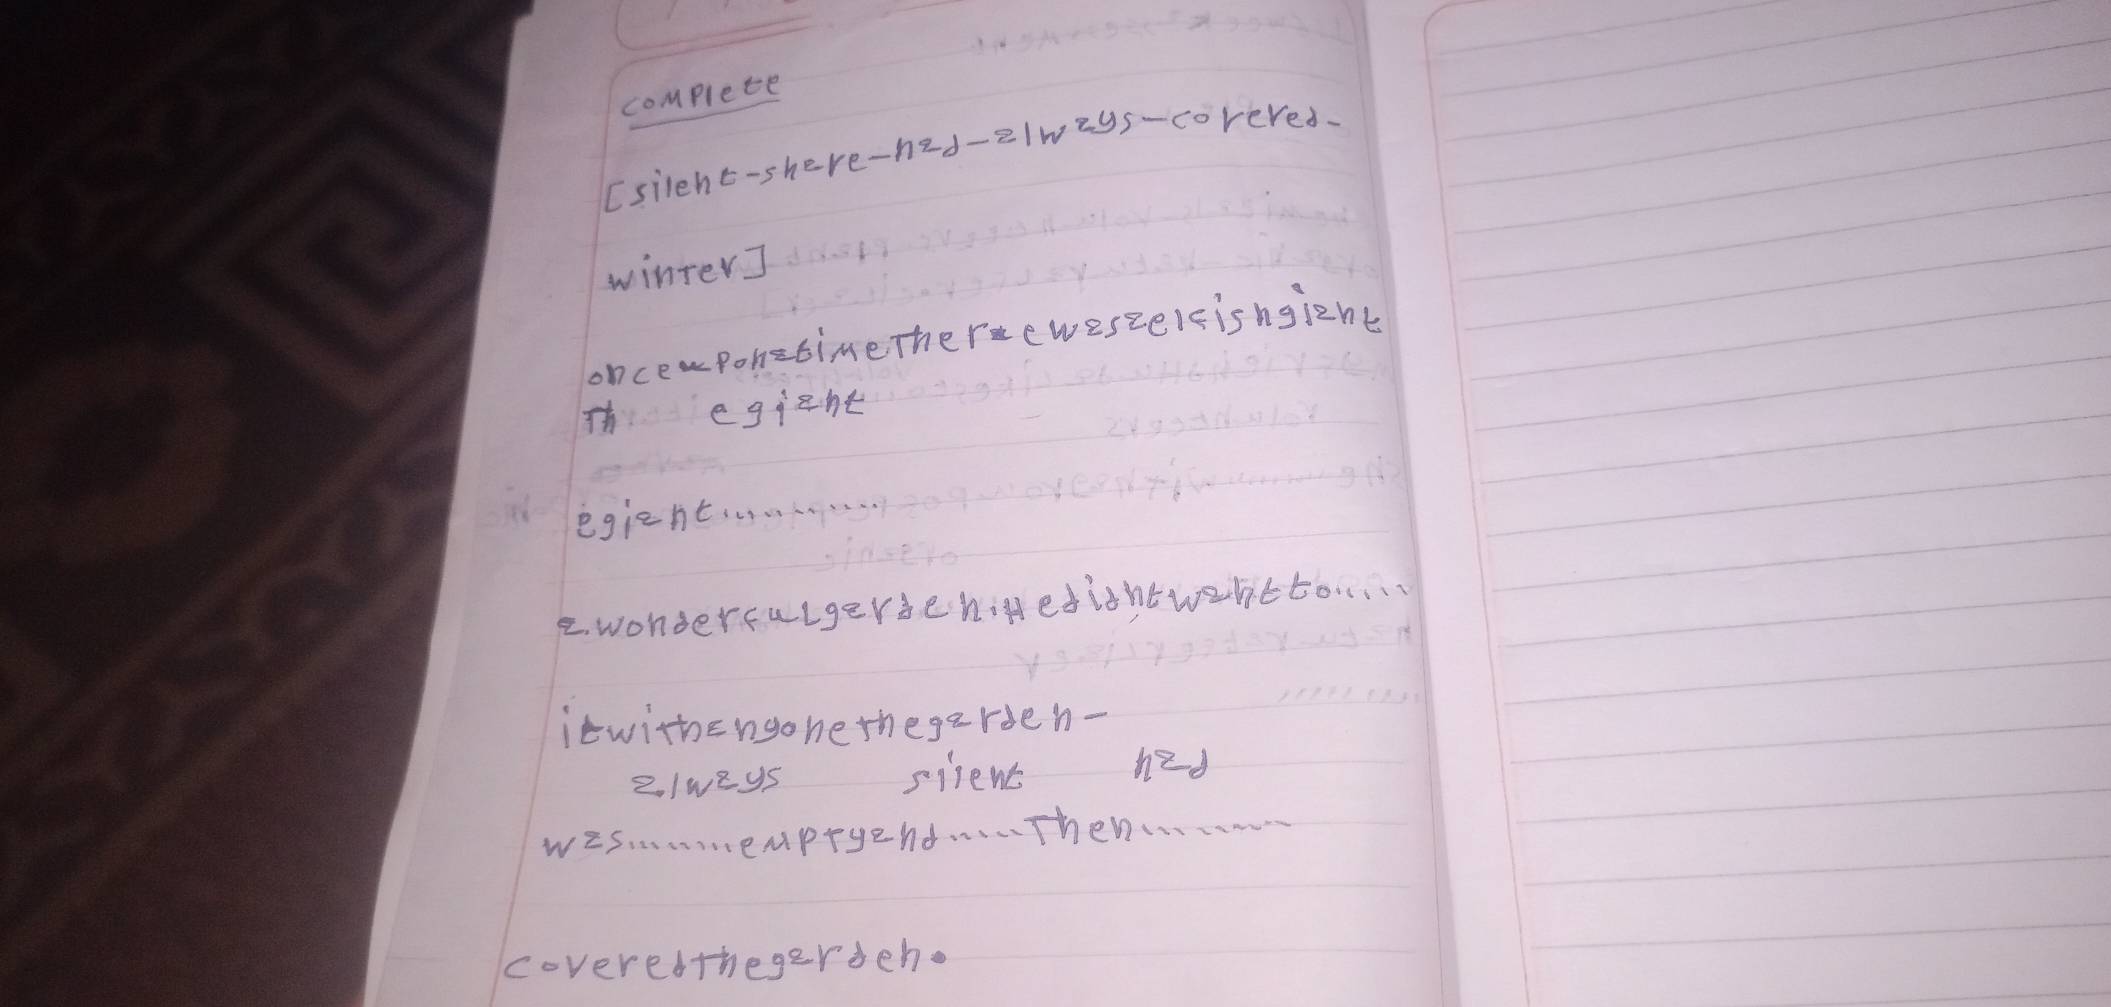 complete
[silent-share-had-always-covered-
winter]
onceuponatimetherewasaelfishgiant
Th egiant
egiant............
a.wonderfulgarden.Hedidntwantto.....
itwithanyonethegarden-
always silent had
was........emptyand.....Then........
coveredthegarden.